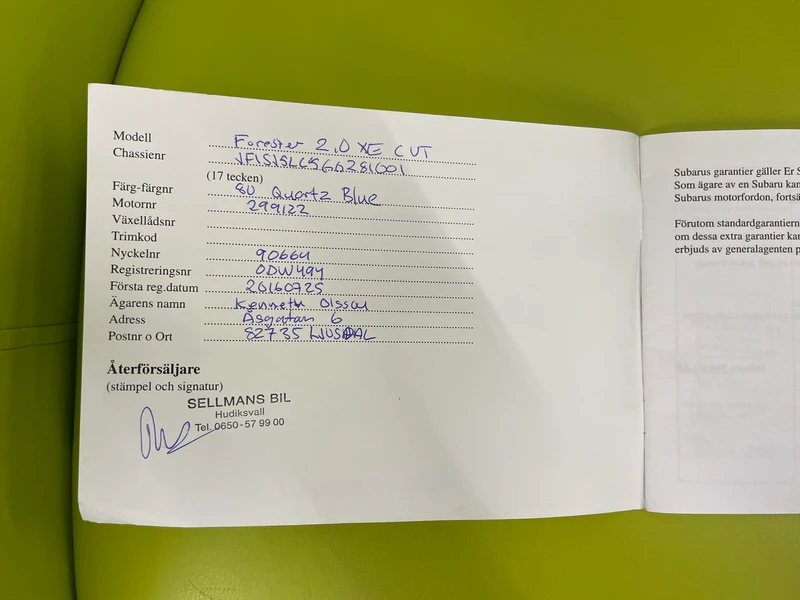 Modell Forester 2,0 XE CVT
Chassienr JF1SJSLC5GG281001
(17 tecken)
Färg-färgnr 8U Quartz Blue
Motornr 299122
Växellådsnr
Trimkod
Nyckelnr 90664
Registreringsnr ODW494
Första reg.datum 20160725
Ägarens namn Kenneth Olsson
Adress Åsgatan 6
Postnr o Ort 82735 LJUSDAL
Återförsäljare
(stämpel och signatur)
SELLMANS BIL
Hudiksvall
Tel. 0650-57 99 00
Subarus garantier gäller Er S
Som ägare av en Subaru kan
Subarus motorfordon, fortsä
Förutom standardgarantiern
om dessa extra garantier kan
erbjuds av generalagenten p